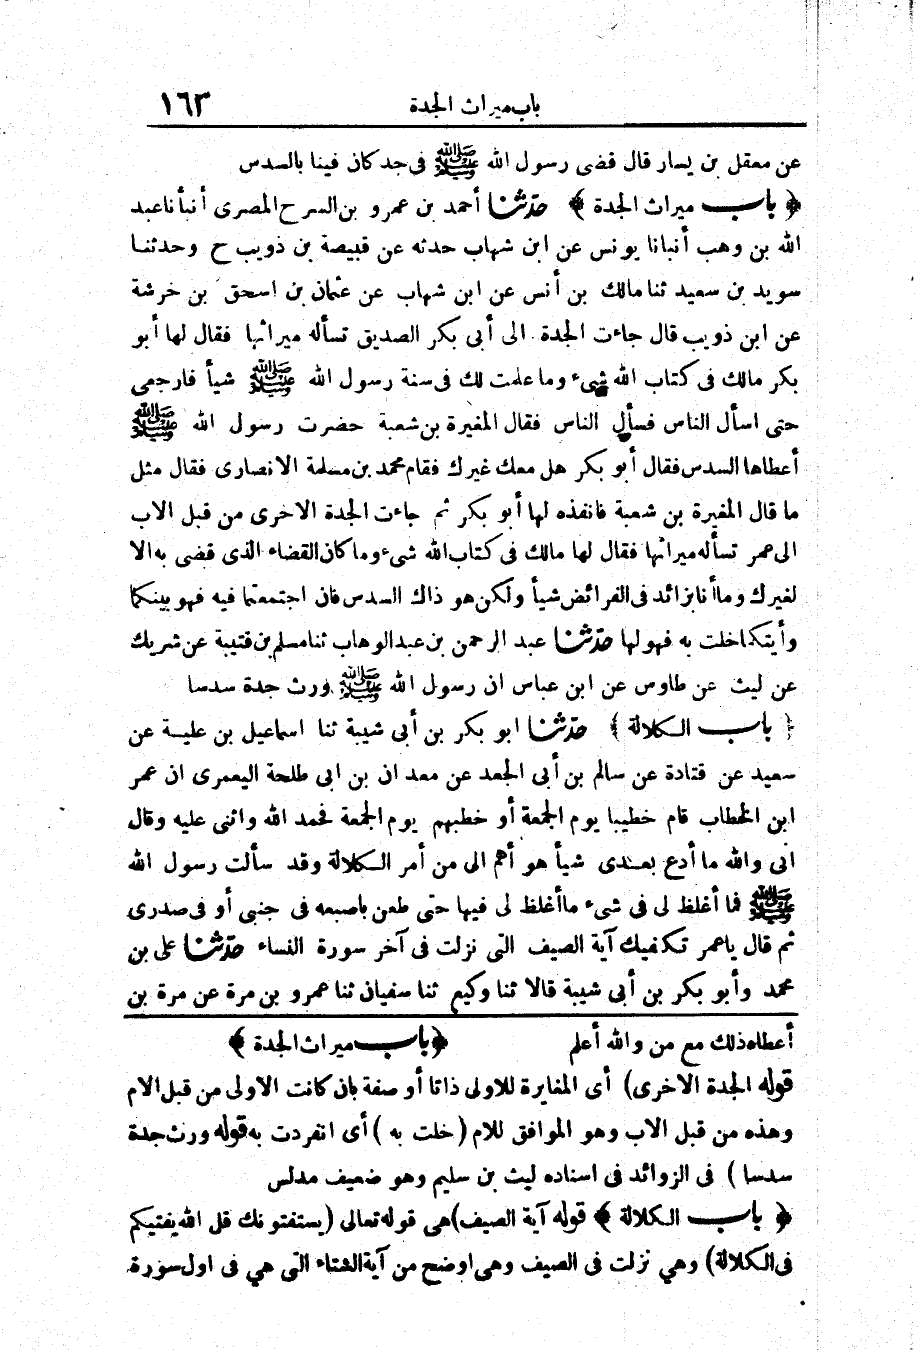 باب ميراث الجدة ١٦٣
عن معقل بن يسار قال قضى رسول الله ﷺ فى جد كان فينا بالسدس
﴿ باب ميراث الجدة ﴾ حدّثنا أحمد بن عمرو بن السرح المصرى أنبأنا عبد
الله بن وهب أنبانا يونس عن ابن شهاب حدثه عن قبيصة بن ذويب ح وحدثنا
سويد بن سعيد ثنا مالك بن أنس عن ابن شهاب عن عثمان بن اسحق بن خرشة
عن ابن ذويب قال جاءت الجدة الى أبى بكر الصديق تسأله ميراثها فقال لها أبو
بكر مالك فى كتاب الله شىء وما علمت لك فى سنة رسول الله ﷺ شيأ فارجعى
حتى اسأل الناس فسأل الناس فقال المغيرة بن شعبة حضرت رسول الله ﷺ
أعطاها السدس فقال أبو بكر هل معك غيرك فقام محمد بن مسلمة الانصارى فقال مثل
ما قال المغيرة بن شعبة فانفذه لها أبو بكر ثم جاءت الجدة الاخرى من قبل الاب
الى عمر تسأله ميراثها فقال لها مالك فى كتاب الله شىء وما كان القضاء الذى قضى به الا
لغيرك وما أنا بزائد فى الفرائض شيأ ولكن هو ذاك السدس فان اجتمعتما فيه فهو بينكما
وأيتكما خلت به فهو لها حدّثنا عبد الرحمن بن عبد الوهاب ثنا مسلم بن قتيبة عن شريك
عن ليث عن طاوس عن ابن عباس ان رسول الله ﷺ ورث جدة سدسا
﴿ باب الكلالة ﴾ حدّثنا ابو بكر بن أبى شيبة ثنا اسماعيل بن علية عن
سعيد عن قتادة عن سالم بن أبى الجعد عن معد ان بن ابى طلحة اليعمرى ان عمر
ابن الخطاب قام خطيبا يوم الجمعة أو خطبهم يوم الجمعة فحمد الله واثنى عليه وقال
انى والله ما أدع بعدى شيأ هو أهم الى من أمر الكلالة وقد سألت رسول الله
ﷺ فما أغلظ لى فى شىء ما أغلظ لى فيها حتى طعن باصبعه فى جنبى أو فى صدرى
ثم قال يا عمر تكفيك آية الصيف التى نزلت فى آخر سورة النساء حدّثنا على بن
محمد وأبو بكر بن أبى شيبة قالا ثنا وكيع ثنا سفيان ثنا عمرو بن مرة عن مرة بن
أعطاه ذلك مع من والله أعلم ﴿ باب ميراث الجدة ﴾
قوله الجدة الاخرى) أى المغايرة للاولى ذاتا أو صفة بان كانت الاولى من قبل الام
وهذه من قبل الاب وهو الموافق للام (خلت به) أى انفردت به قوله ورث جدة
سدسا ) فى الزوائد فى اسناده ليث بن سليم وهو ضعيف مدلس
﴿ باب الكلالة ﴾ قوله آية الصيف) هى قوله تعالى (يستفتونك قل الله يفتيكم
فى الكلالة) وهي نزلت فى الصيف وهى اوضح من آية الشتاء التى هي فى اول سورة